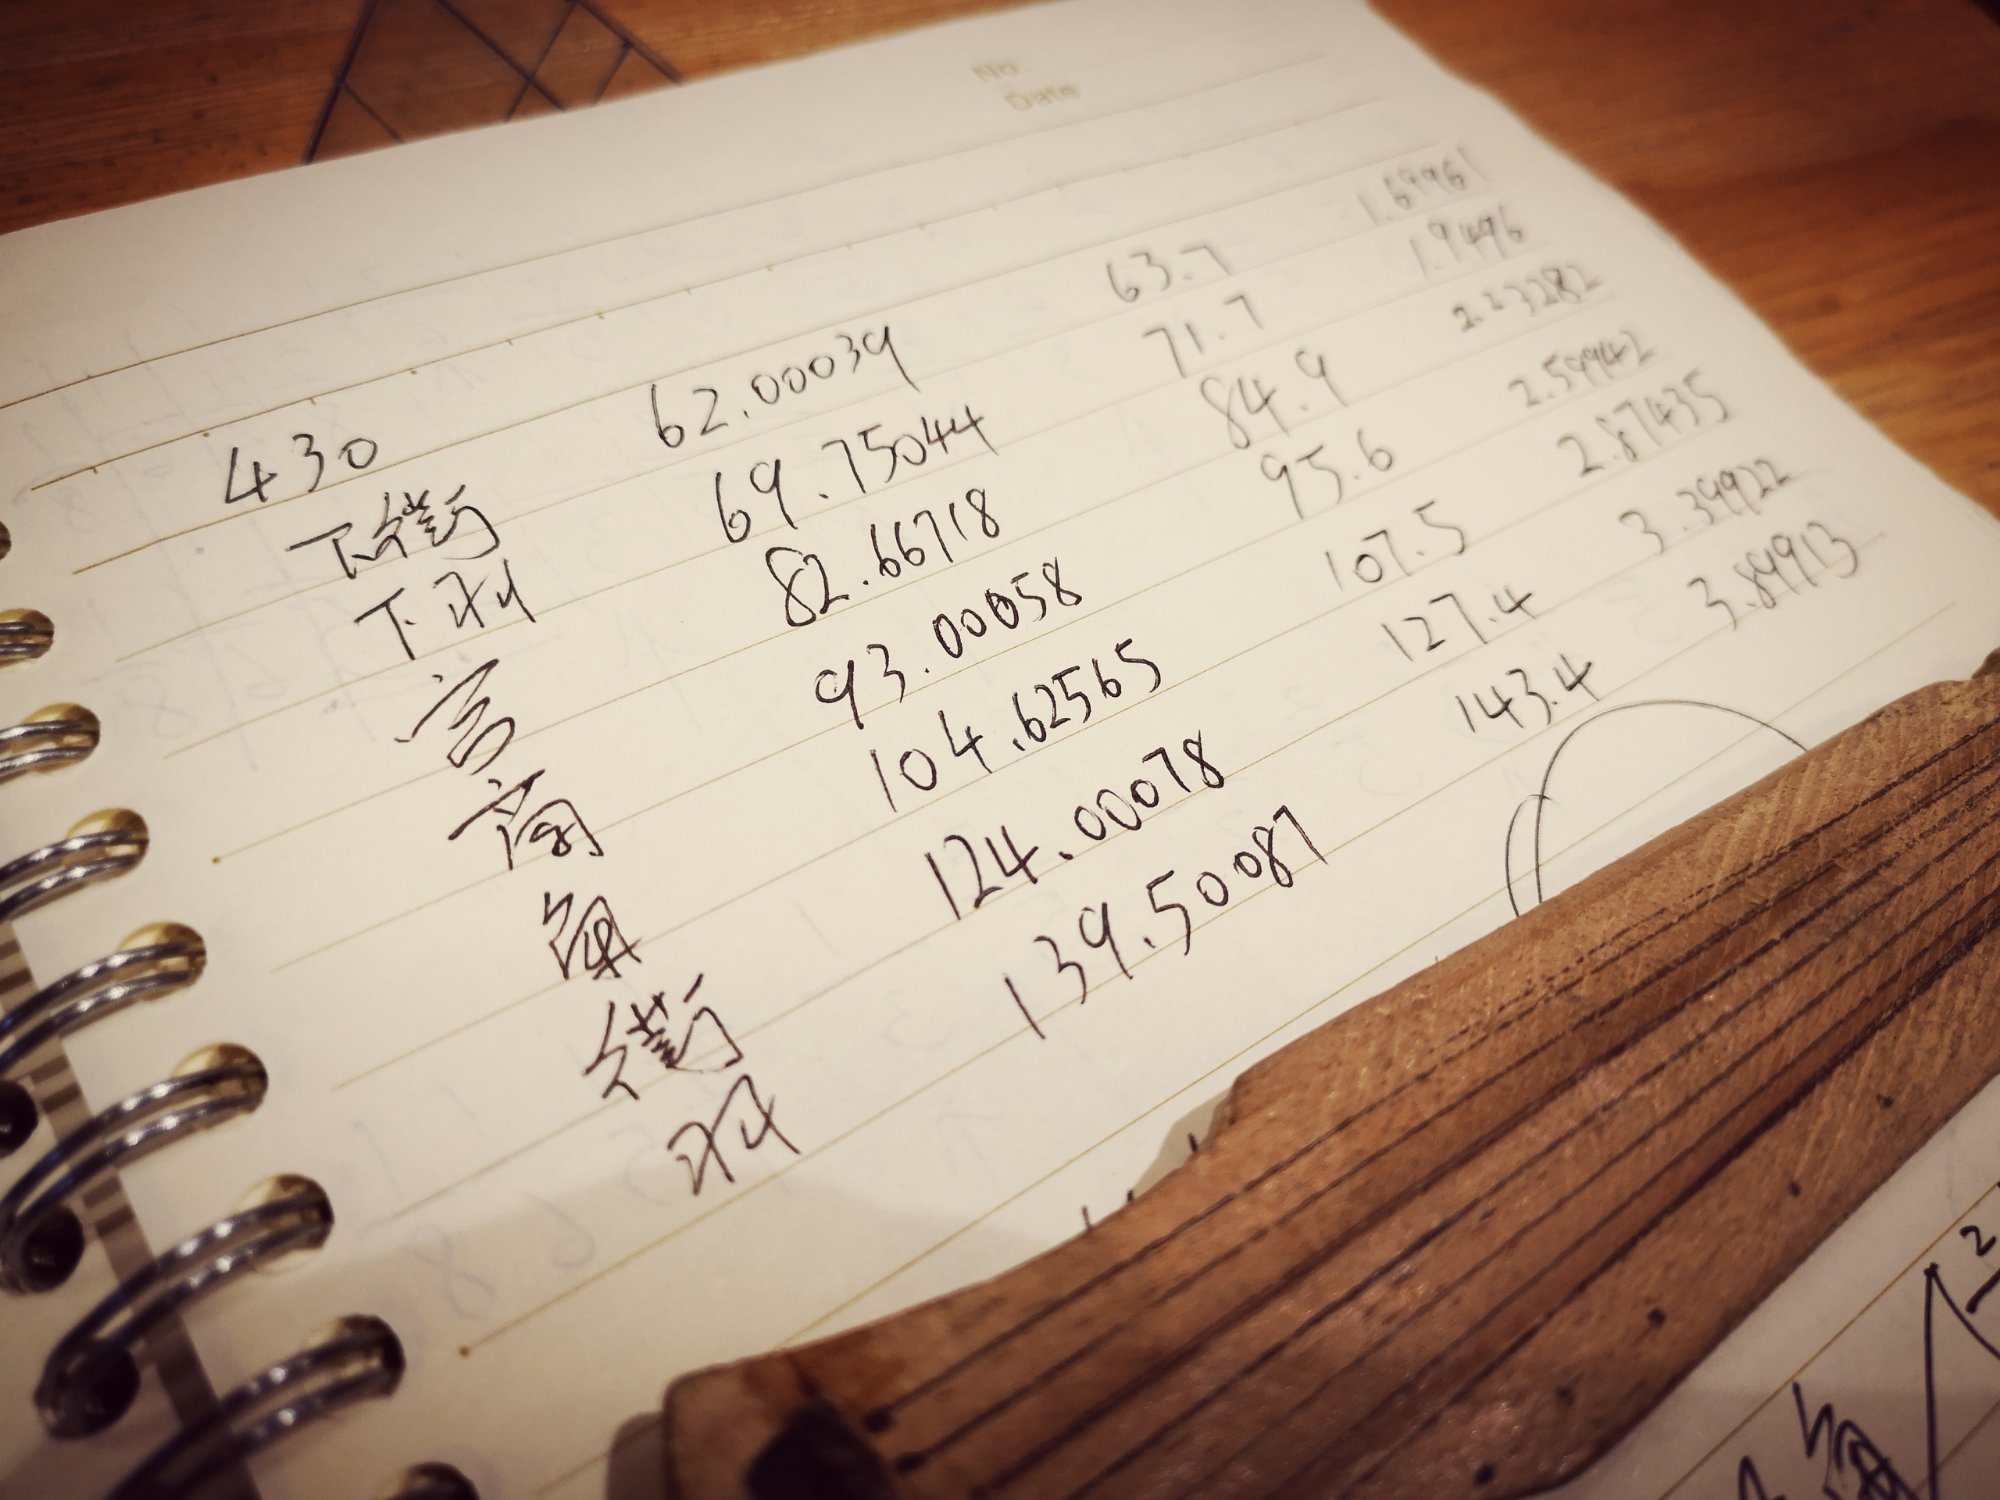 No.
Date
430
下徵 62.00039 63.7 1.69961
下羽 69.75044 71.7 1.9496
宫 82.66718 84.9 2.23282
商 93.00058 95.6 2.59942
角 104.62565 107.5 2.87435
徵 124.00078 127.4 3.39922
羽 139.50087 143.4 3.89913
2